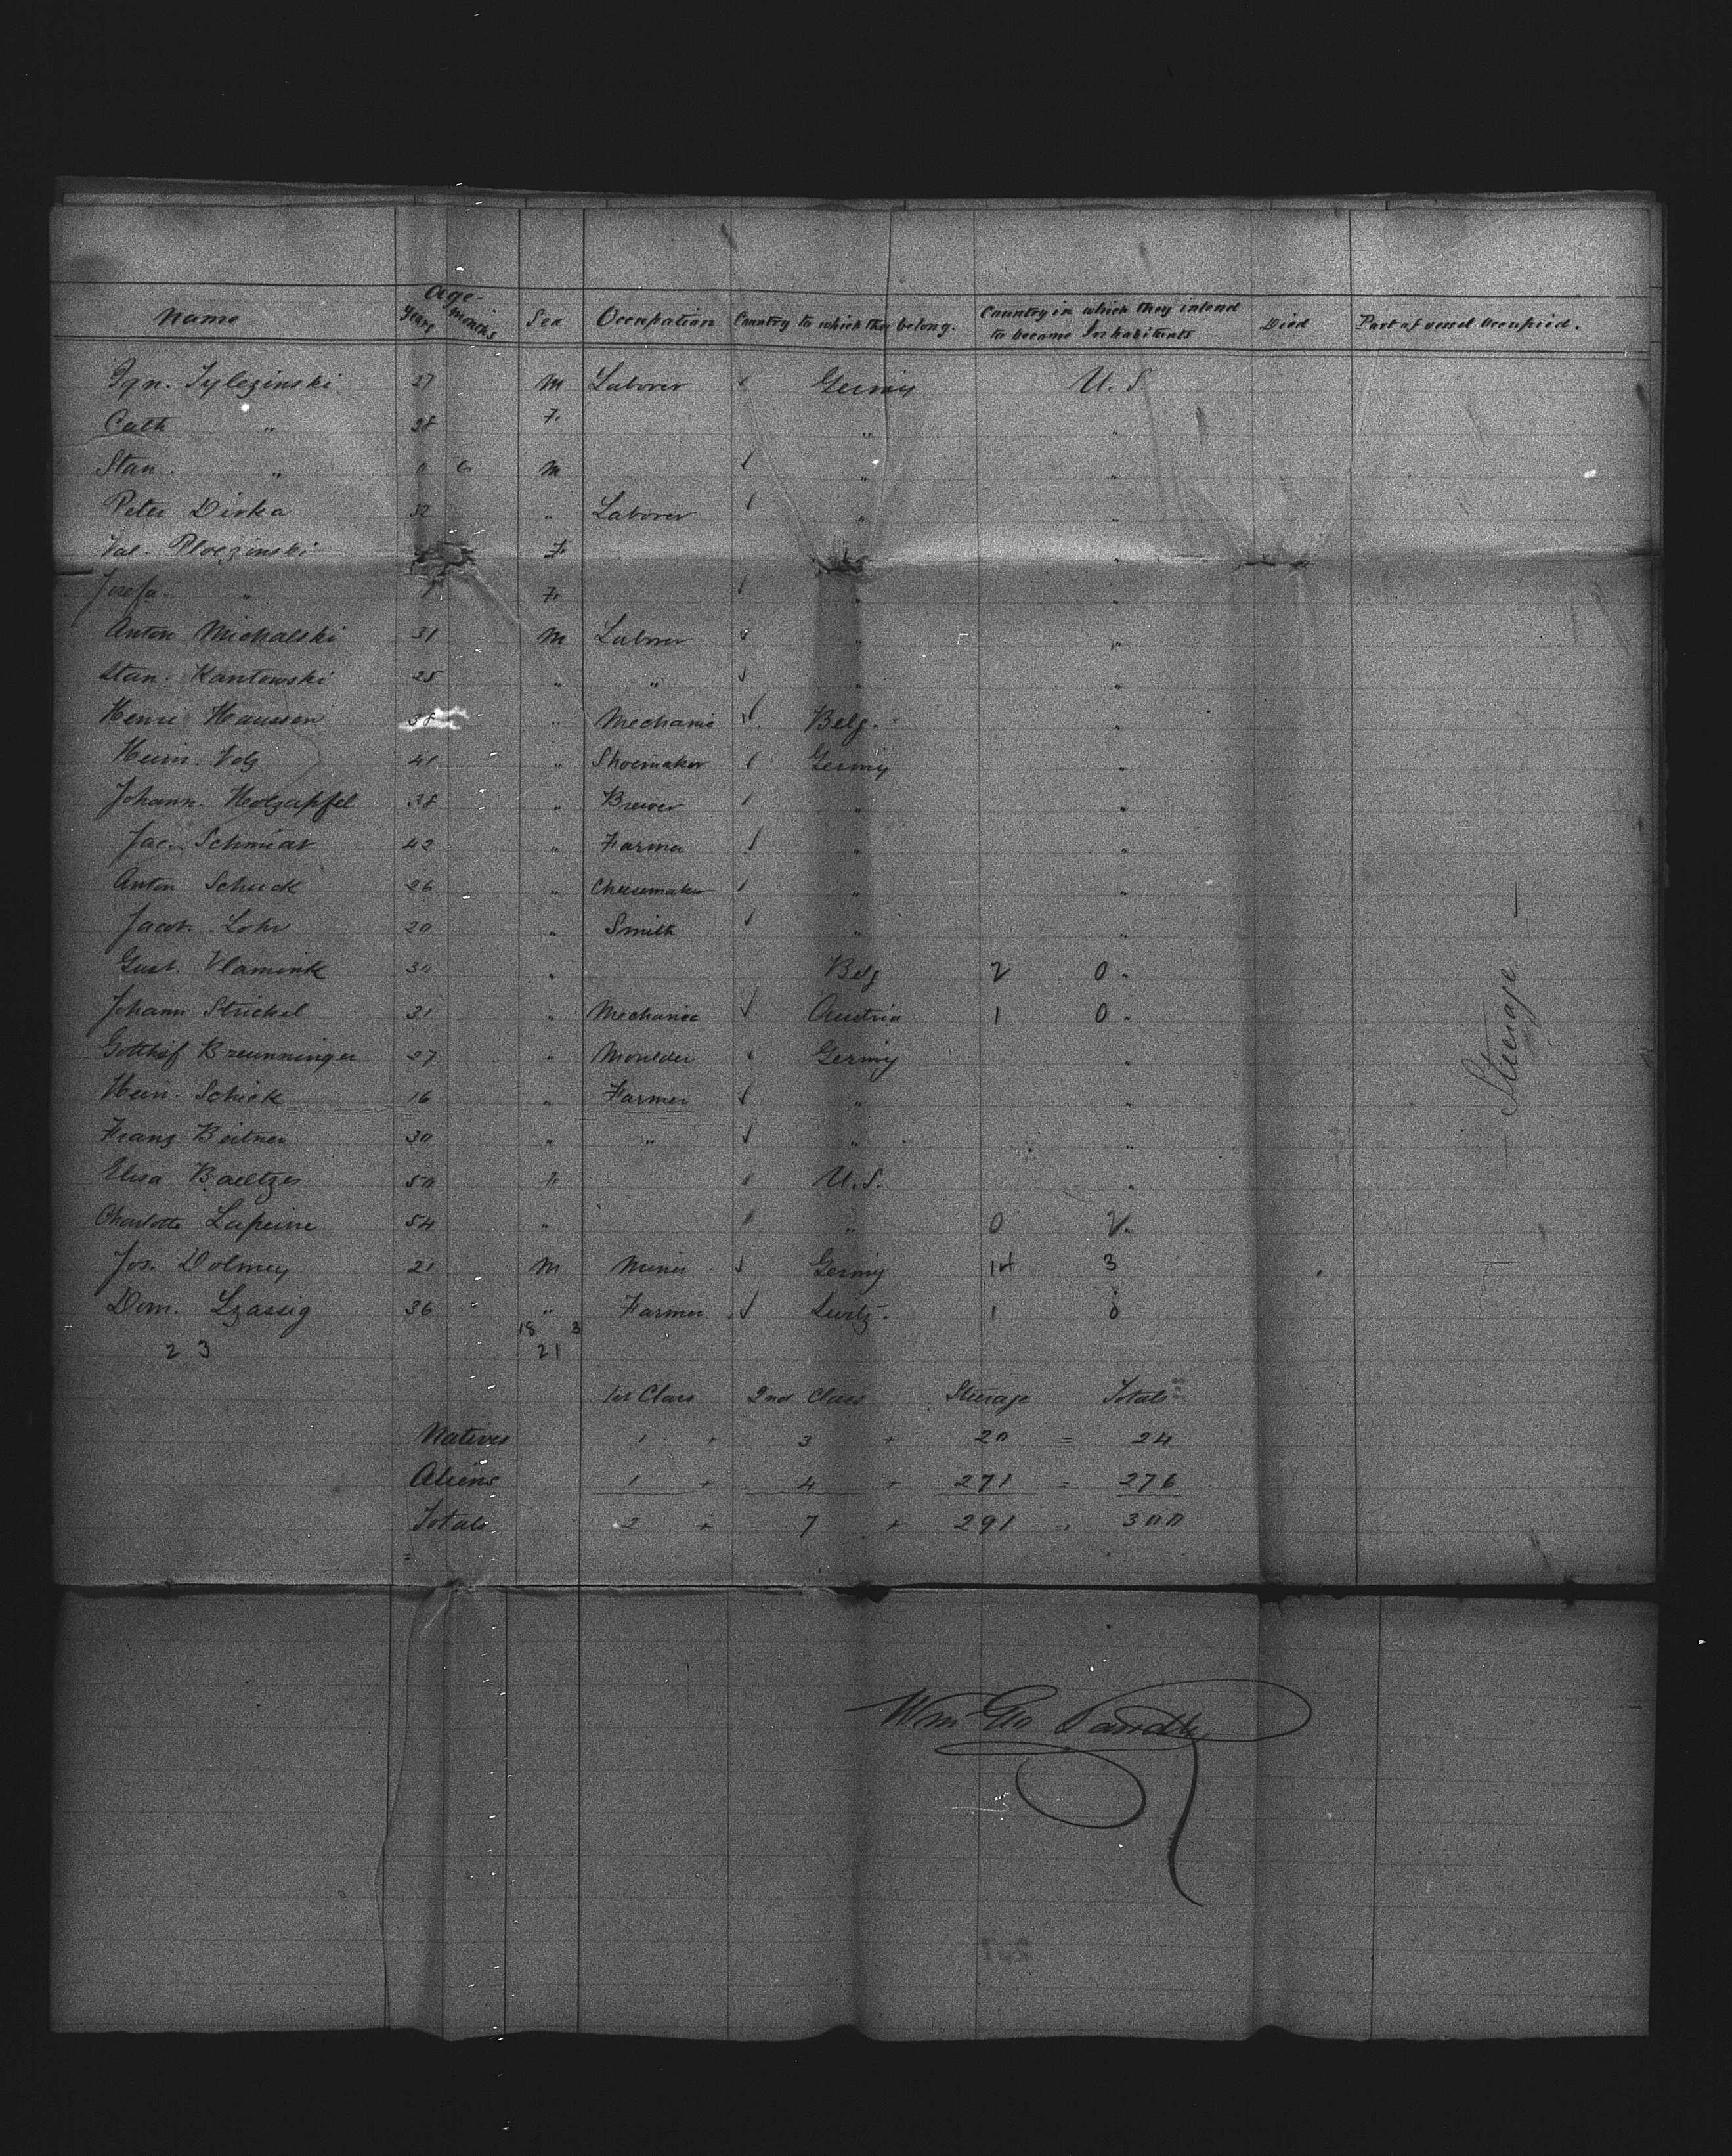 Name Age Years Months Sex Occupation Country to which they belong. Country in which they intend to become Inhabitants Died Part of vessel occupied.
Ign. Sylezinski 27 M Laborer ✓ Germy U. S.
Cath " 28 F. " "
Stan. " 0 6 M ✓ " "
Peter Dirka 32 " Laborer ✓ " "
Val. Ploezinski F. "
Josefa " F. ✓ " "
Anton Michalski 31 M Laborer ✓ " "
Stan. Kantowski 25 " " ✓ " "
Henri Haussen 38 " Mechanic ✓ Belg. "
Hein. Volz 41 " Shoemaker ✓ Germy "
Johann Holzapfel 38 " Brewer ✓ " "
Jac. Schmidt 42 " Farmer ✓ " "
Anton Schuck 26 " Cheesemaker ✓ " "
Jacob Lohr 20 " Smith ✓ " "
Gust. Vlamink 30 " Belg 2 0 "
Johann Strickel 31 " Mechanic ✓ Austria 1 0 "
Gotthilf Breunninger 27 " Moulder ✓ Germy "
Hein. Schick 16 " Farmer ✓ " "
Franz Beitner 30 " " ✓ " "
Elisa Baeltzer 50 F. ✓ U. S. "
Charlotte Lapeine 54 " ✓ " 0 2 "
Jos. Dolmey 21 M Miner ✓ Germy 14 3
Dom. Lzassig 36 " Farmer ✓ Switz. 1 0
18 3
2 3 21
— Steerage —
1st Class 2nd Class Steerage Totals
Natives 1 + 3 + 20 = 24
Aliens 1 + 4 + 271 = 276
Totals 2 + 7 + 291 = 300
Wm Geo